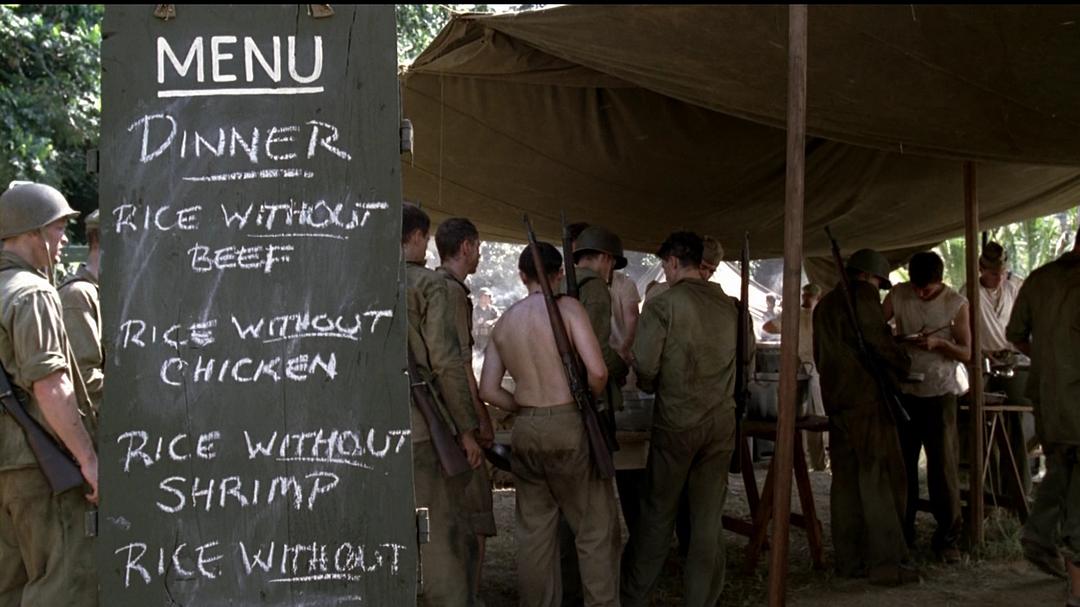 MENU
DINNER
RICE WITHOUT
BEEF
RICE WITHOUT
CHICKEN
RICE WITHOUT
SHRIMP
RICE WITHOUT